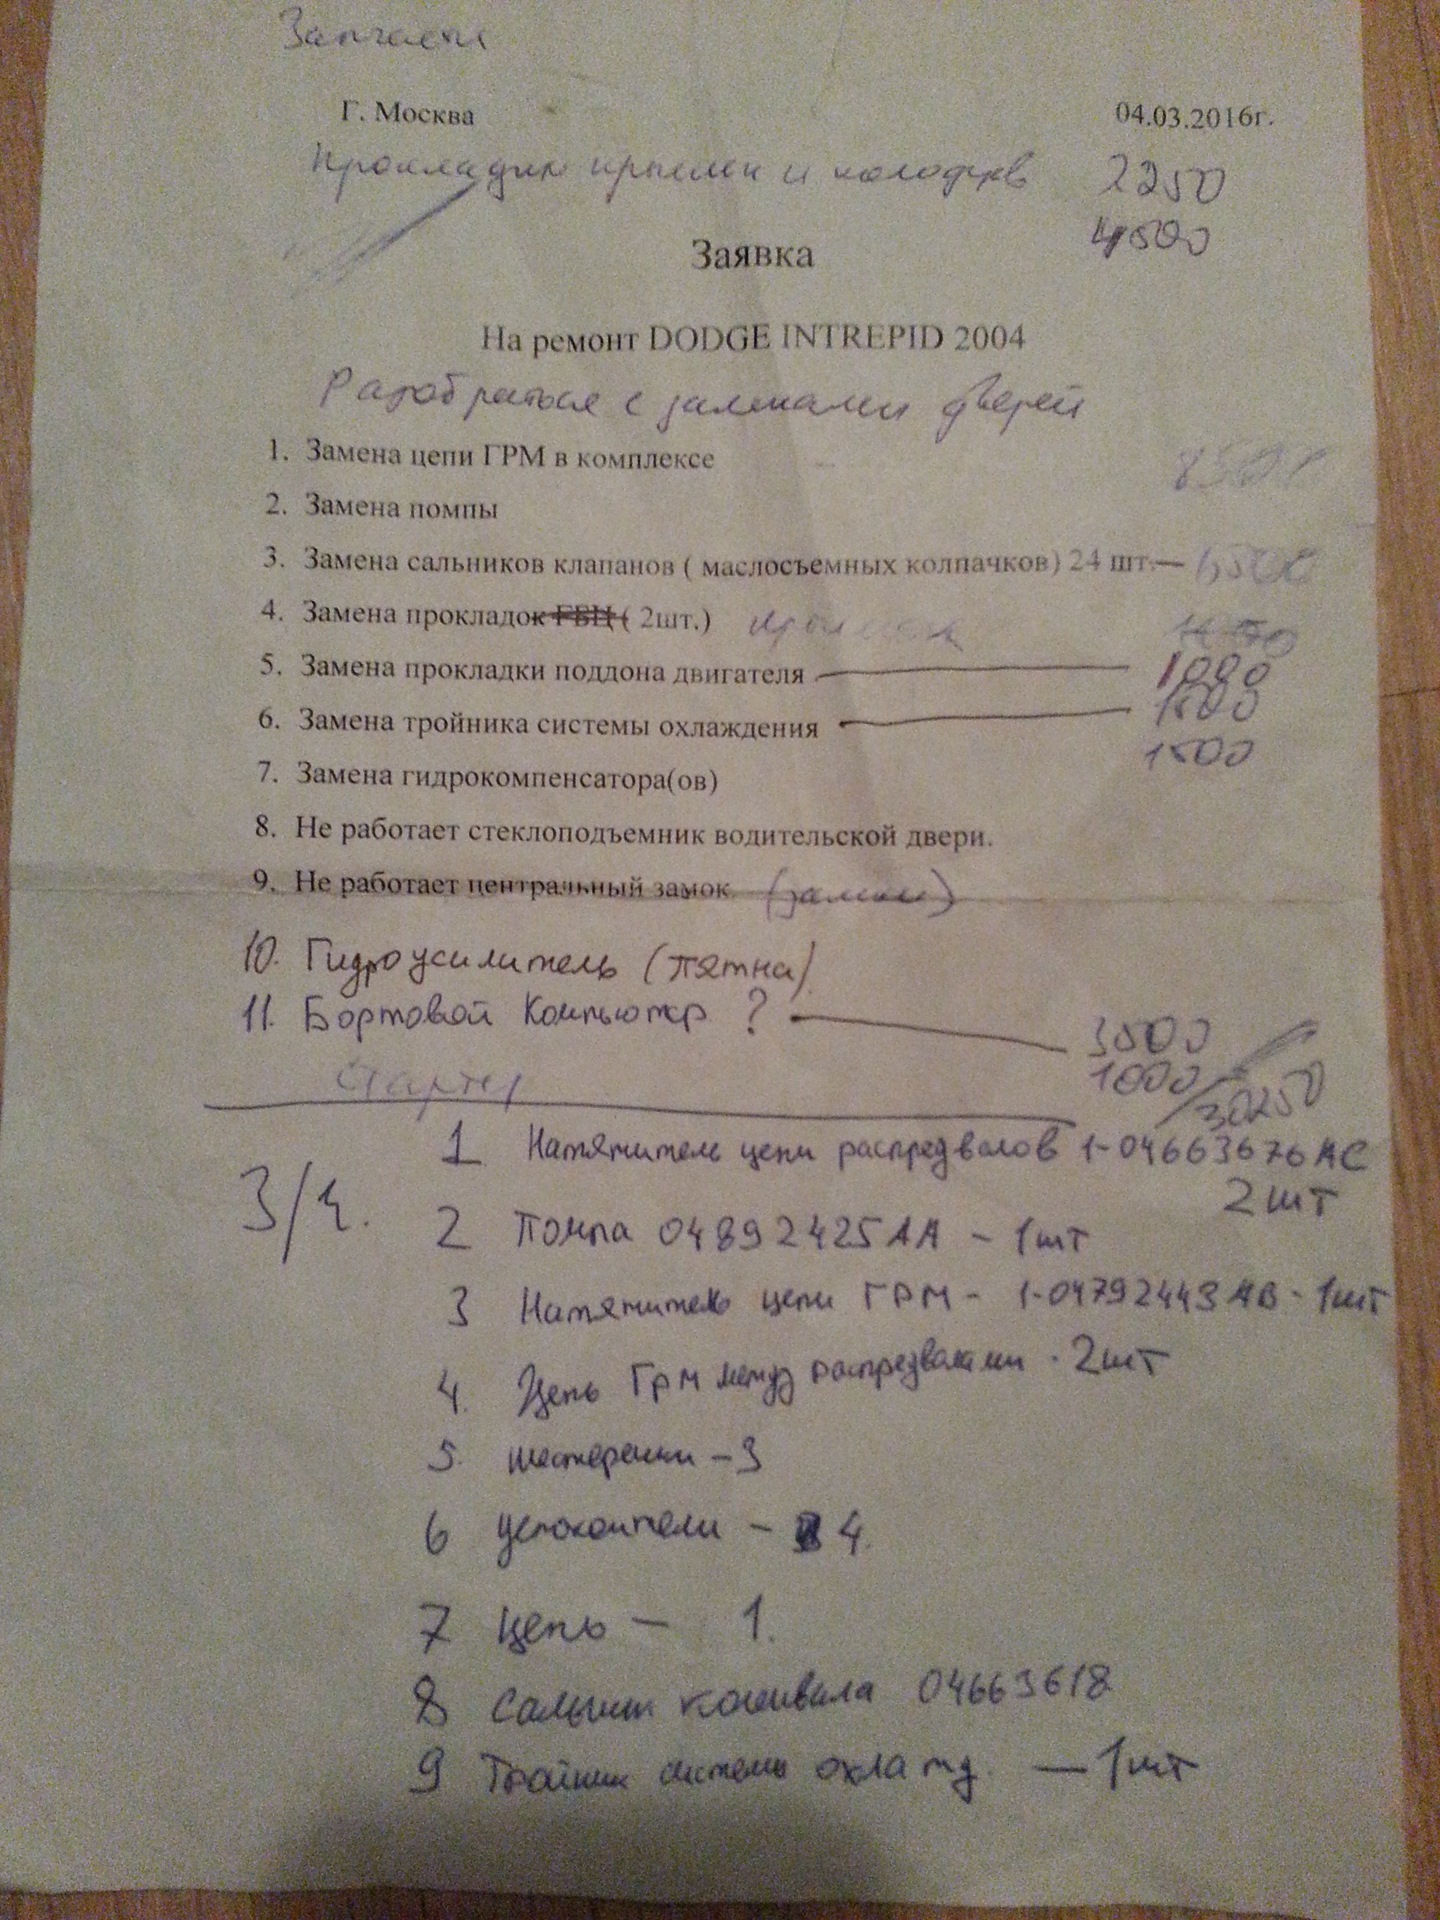 Запчасти
Г. Москва 04.03.2016г.
Прокладки крышек и колодцев 2250
4500
Заявка
На ремонт DODGE INTREPID 2004
Разобраться с замками дверей
1. Замена цепи ГРМ в комплексе
2. Замена помпы
3. Замена сальников клапанов ( маслосъемных колпачков) 24 шт.—
4. Замена прокладок ГБЦ ( 2шт.)
5. Замена прокладки поддона двигателя 1000
6. Замена тройника системы охлаждения 1500
1500
7. Замена гидрокомпенсатора(ов)
8. Не работает стеклоподъемник водительской двери.
9. Не работает центральный замок. (замки)
10. Гидроусилитель (пятна)
11. Бортовой Компьютер ? 3500
Стартер 1000 30250
З/ч.
1 Натяжитель цепи распредвалов 1-04663676AC
2 шт
2 Помпа 04892425AA - 1шт
3 Натяжитель цепи ГРМ - 1-04792443AB - 1шт
4. Цепь ГРМ между распредвалами - 2шт
5. шестеренки - 3
6 успокоители - 4.
7 Цепь - 1.
8 Сальник коленвала 04663618
9 Тройник системы охлажд. — 1шт